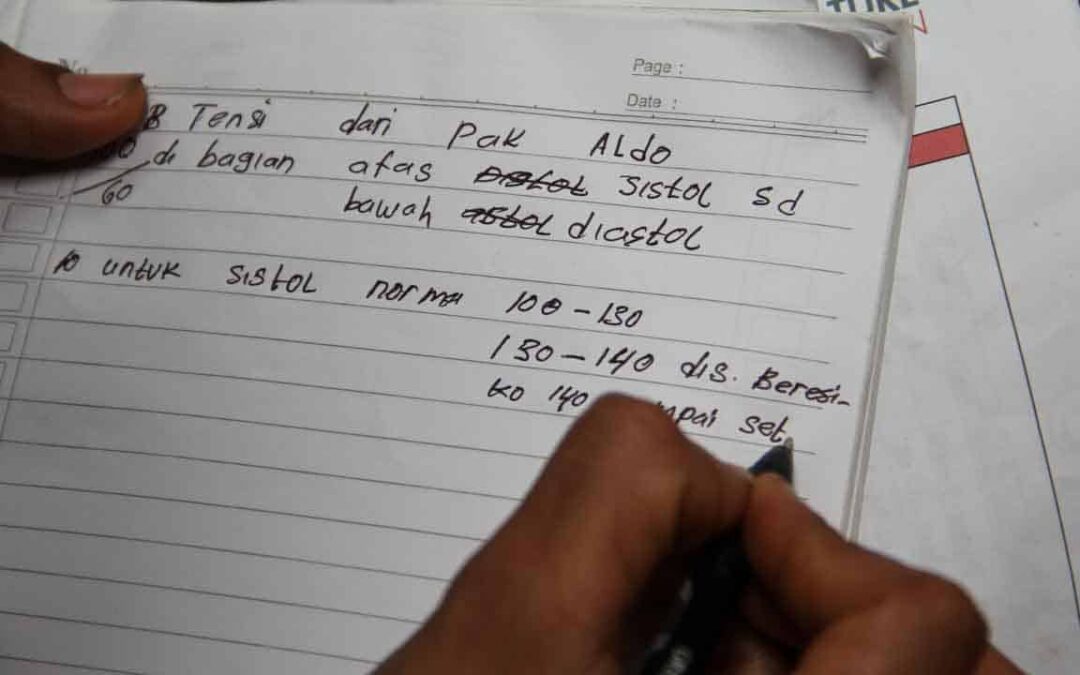 Page :
Date :
Tensi dari Pak ALdo
di bagian atas sistol sd
60 bawah diastol
untuk sistol norma 100-130
130-140 dis. Beresi-
ko 140 set